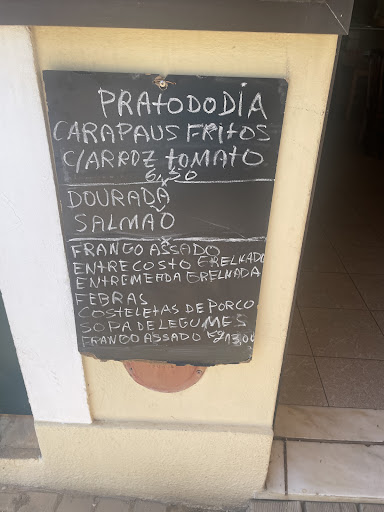 PRATO DO DIA
CARAPAUS FRITOS
C/ARROZ TOMATO
6,50
DOURADA
SALMÃO
FRANGO ASSADO
ENTRECOSTO GRELHADO
ENTREMEADA GRELHADA
FEBRAS
COSTELETAS DE PORCO
SOPA DE LEGUMES
FRANGO ASSADO Kg 13,00